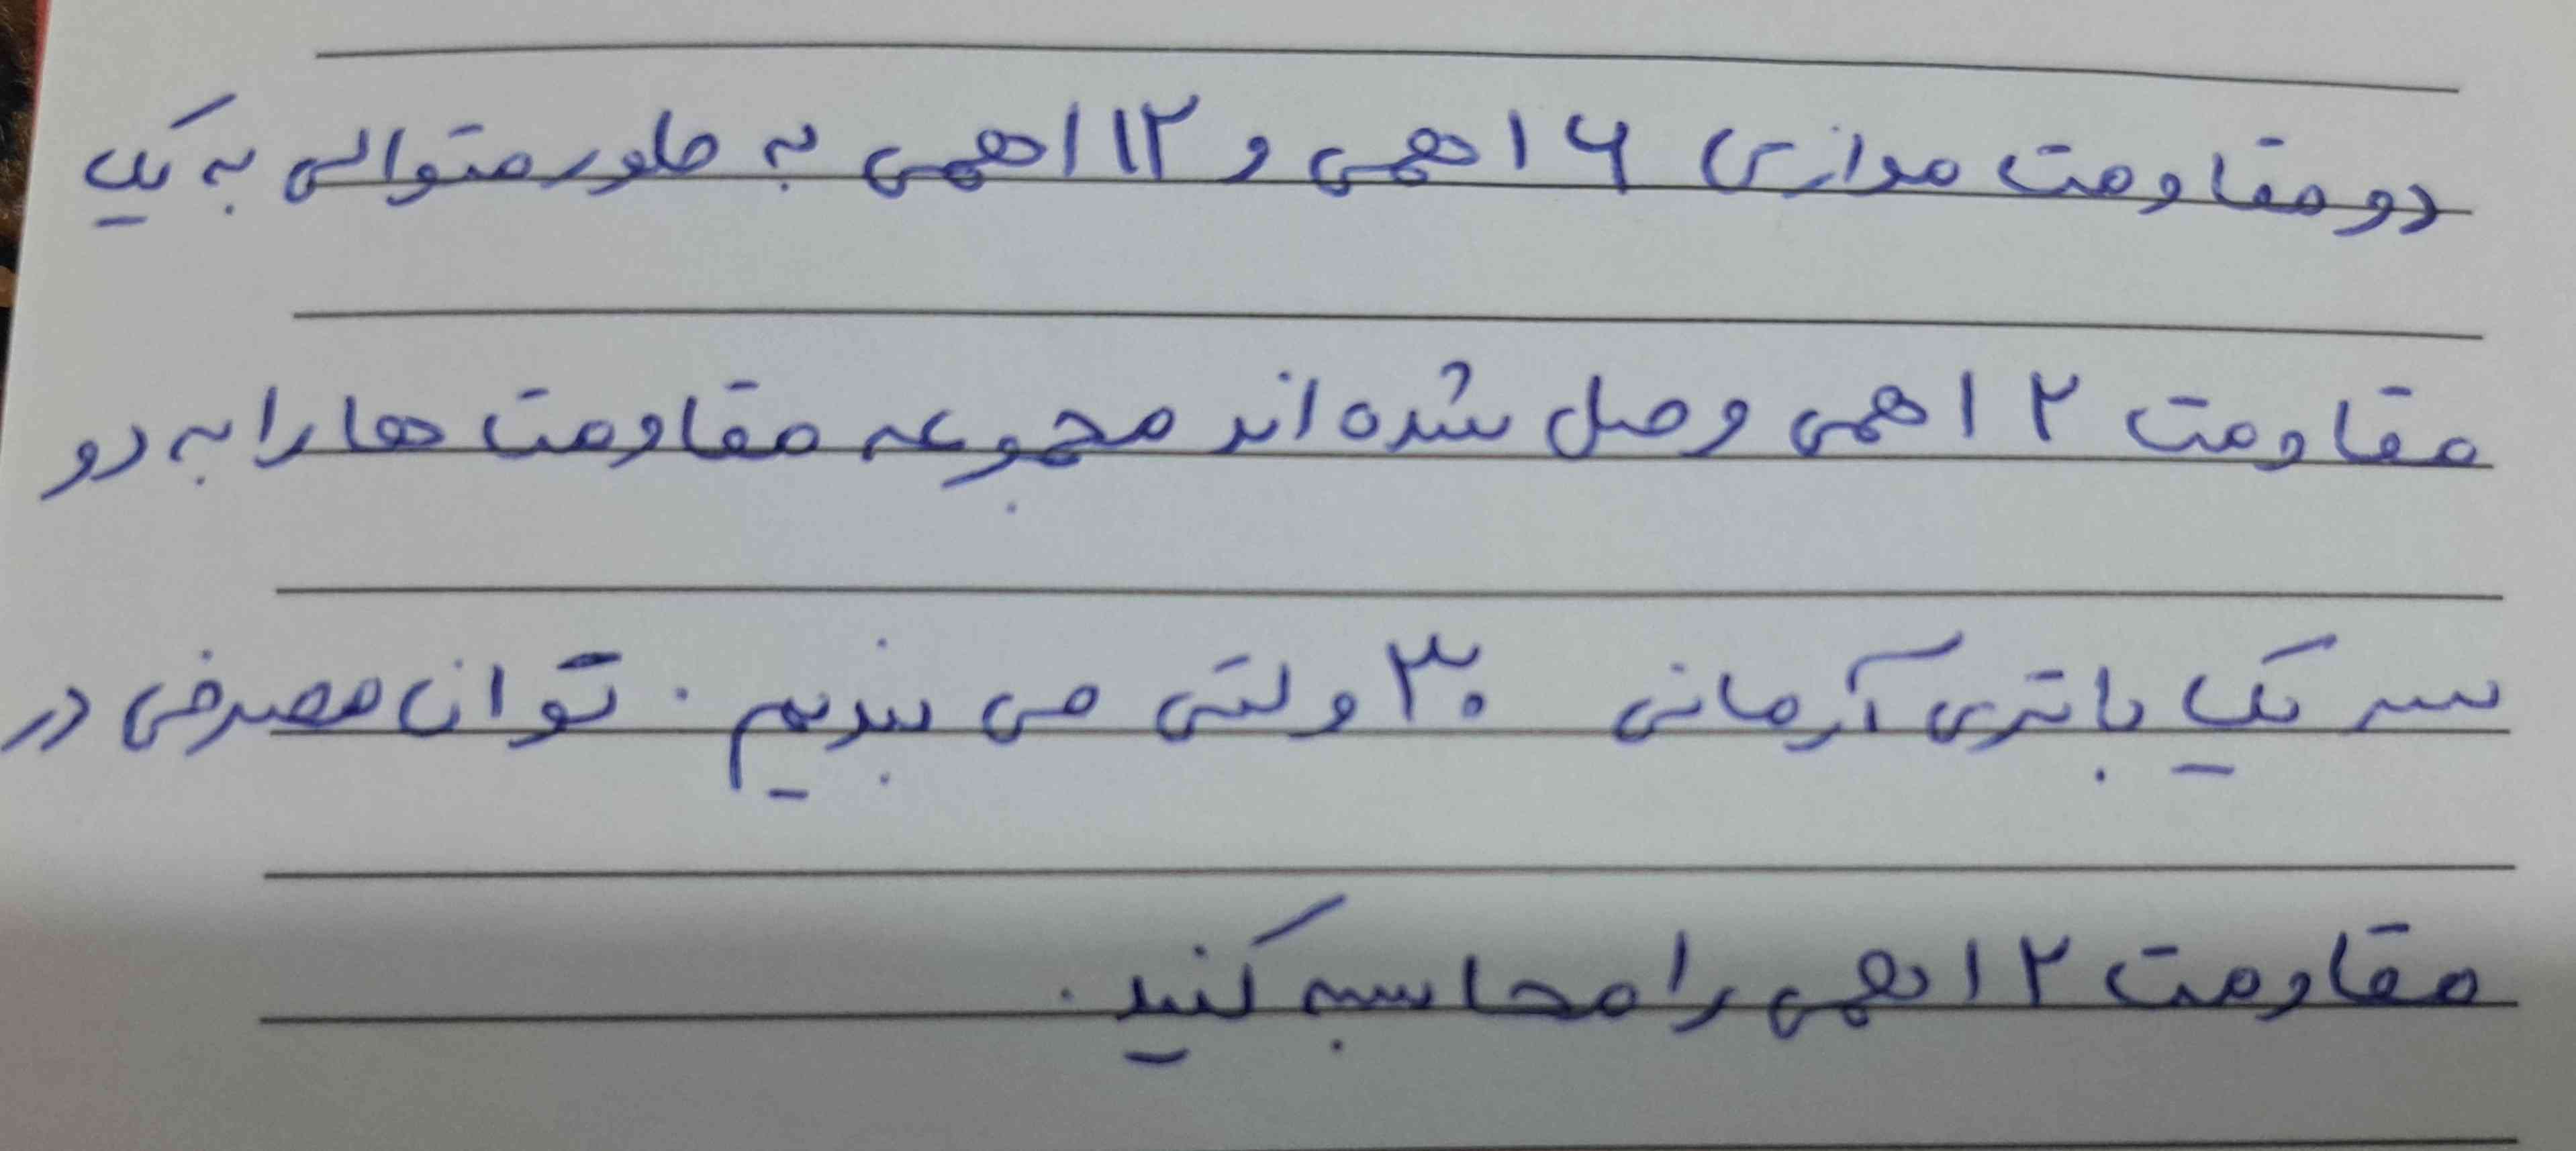 دو مقاومت موازی ۶ اهمی و ۱۲ اهمی به طور متوالی به یک
مقاومت ۲ اهمی وصل شده اند مجموعه مقاومت ها را به دو
سر یک باتری آرمانی ۳۰ ولتی می بندیم . توان مصرفی در
مقاومت ۲ اهمی را محاسبه کنید .